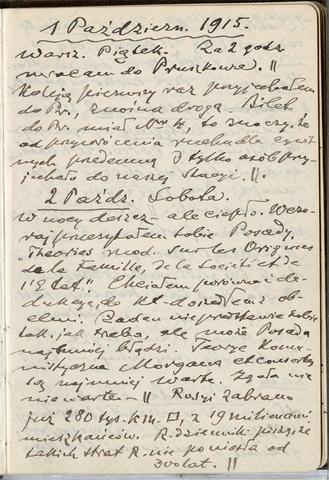 1 Październ. 1915.
Warsz. Piątek. Za 2 godz.
wracam do Pruszkowa. ||
Koleją pierwszy raz przyjechałem
do Pr., żmójna drogą. Bilet
do Pr. miał Nr 4, to znaczy, że
od przywrócenia ruchu dla cywil
nych przedemną 3 tylko osób przy-
jechało do naszej Stacyi. ||
2 Paźdz. Sobota.
W nocy deszcz – ale ciepło. Wczo-
raj przeczytałem sobie Posady,
"Théories mod. sur les Origines
de la Famille, de la Société et de
l'État". Chciałem porównać de-
dukcje, do kt. doszedłem z ob-
cemi. Żaden nie przedstawia sobie
tak, jak trzeba, ale może Posada
najmniej błądzi. Teorye Komu-
nistyczne Morgana et consortes
są najmniej warte. Zgoła nic
nie warte – || Rosyi zabrano
już 280 tys. k. m. □, z 19 milionami
mieszkańców. R. dzienniki piszą, że
takich strat R. nie poniosła od
300 lat. ||